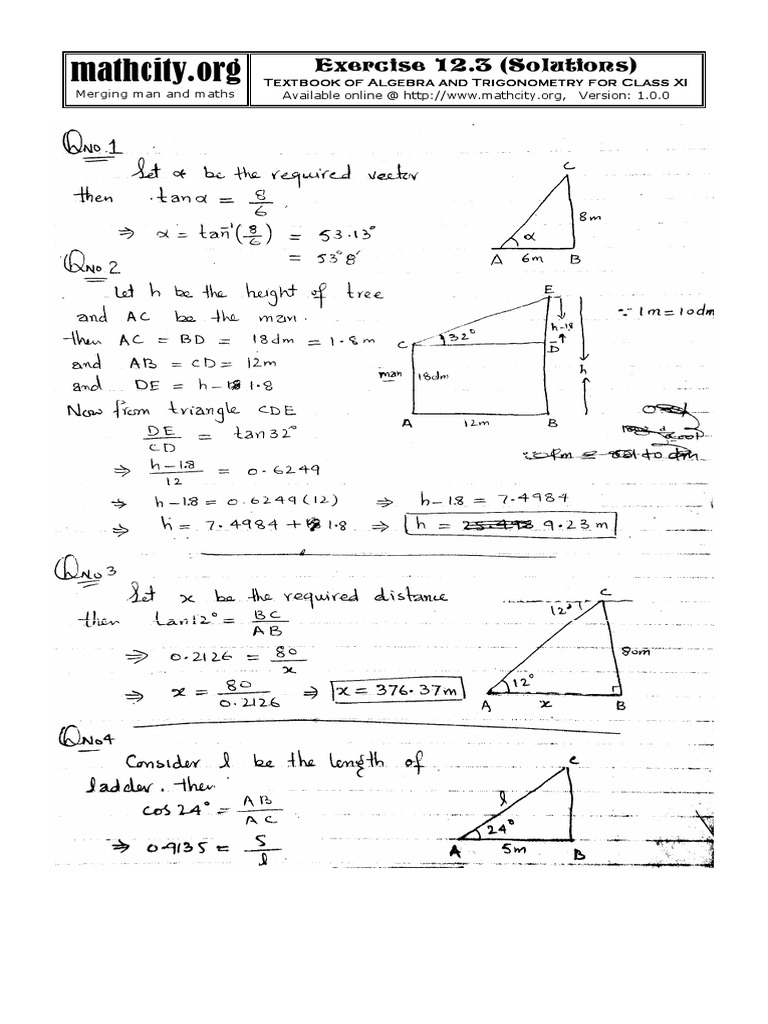 mathcity.org
Merging man and maths
Exercise 12.3 (Solutions)
TEXTBOOK OF ALGEBRA AND TRIGONOMETRY FOR CLASS XI
Available online @ http://www.mathcity.org, Version: 1.0.0
QNO.1
Let α be the required vector
then tanα = 8/6
⇒ α = tan⁻¹(8/6) = 53.13°
= 53°8′
C
8m
α
A 6m B
QNO 2
Let h be the height of tree
and AC be the man.
then AC = BD = 18dm = 1.8m
and AB = CD = 12m
and DE = h-1.8
Now from triangle CDE
DE/CD = tan32°
⇒ h-1.8/12 = 0.6249
⇒ h-1.8 = 0.6249(12) ⇒ h-1.8 = 7.4984
⇒ h = 7.4984 + 1.8 ⇒ h = 9.23 m
E
∵ 1m = 10dm
h-18
32°
C D
h
man 18dm
A 12m B
QNO 3
Let x be the required distance
then tan12° = BC/AB
⇒ 0.2126 = 80/x
⇒ x = 80/0.2126 ⇒ x = 376.37m
C
12°
80m
12°
A x B
QNO4
Consider l be the length of
ladder. then
cos24° = AB/AC
⇒ 0.9135 = 5/l
C
l
24°
A 5m B